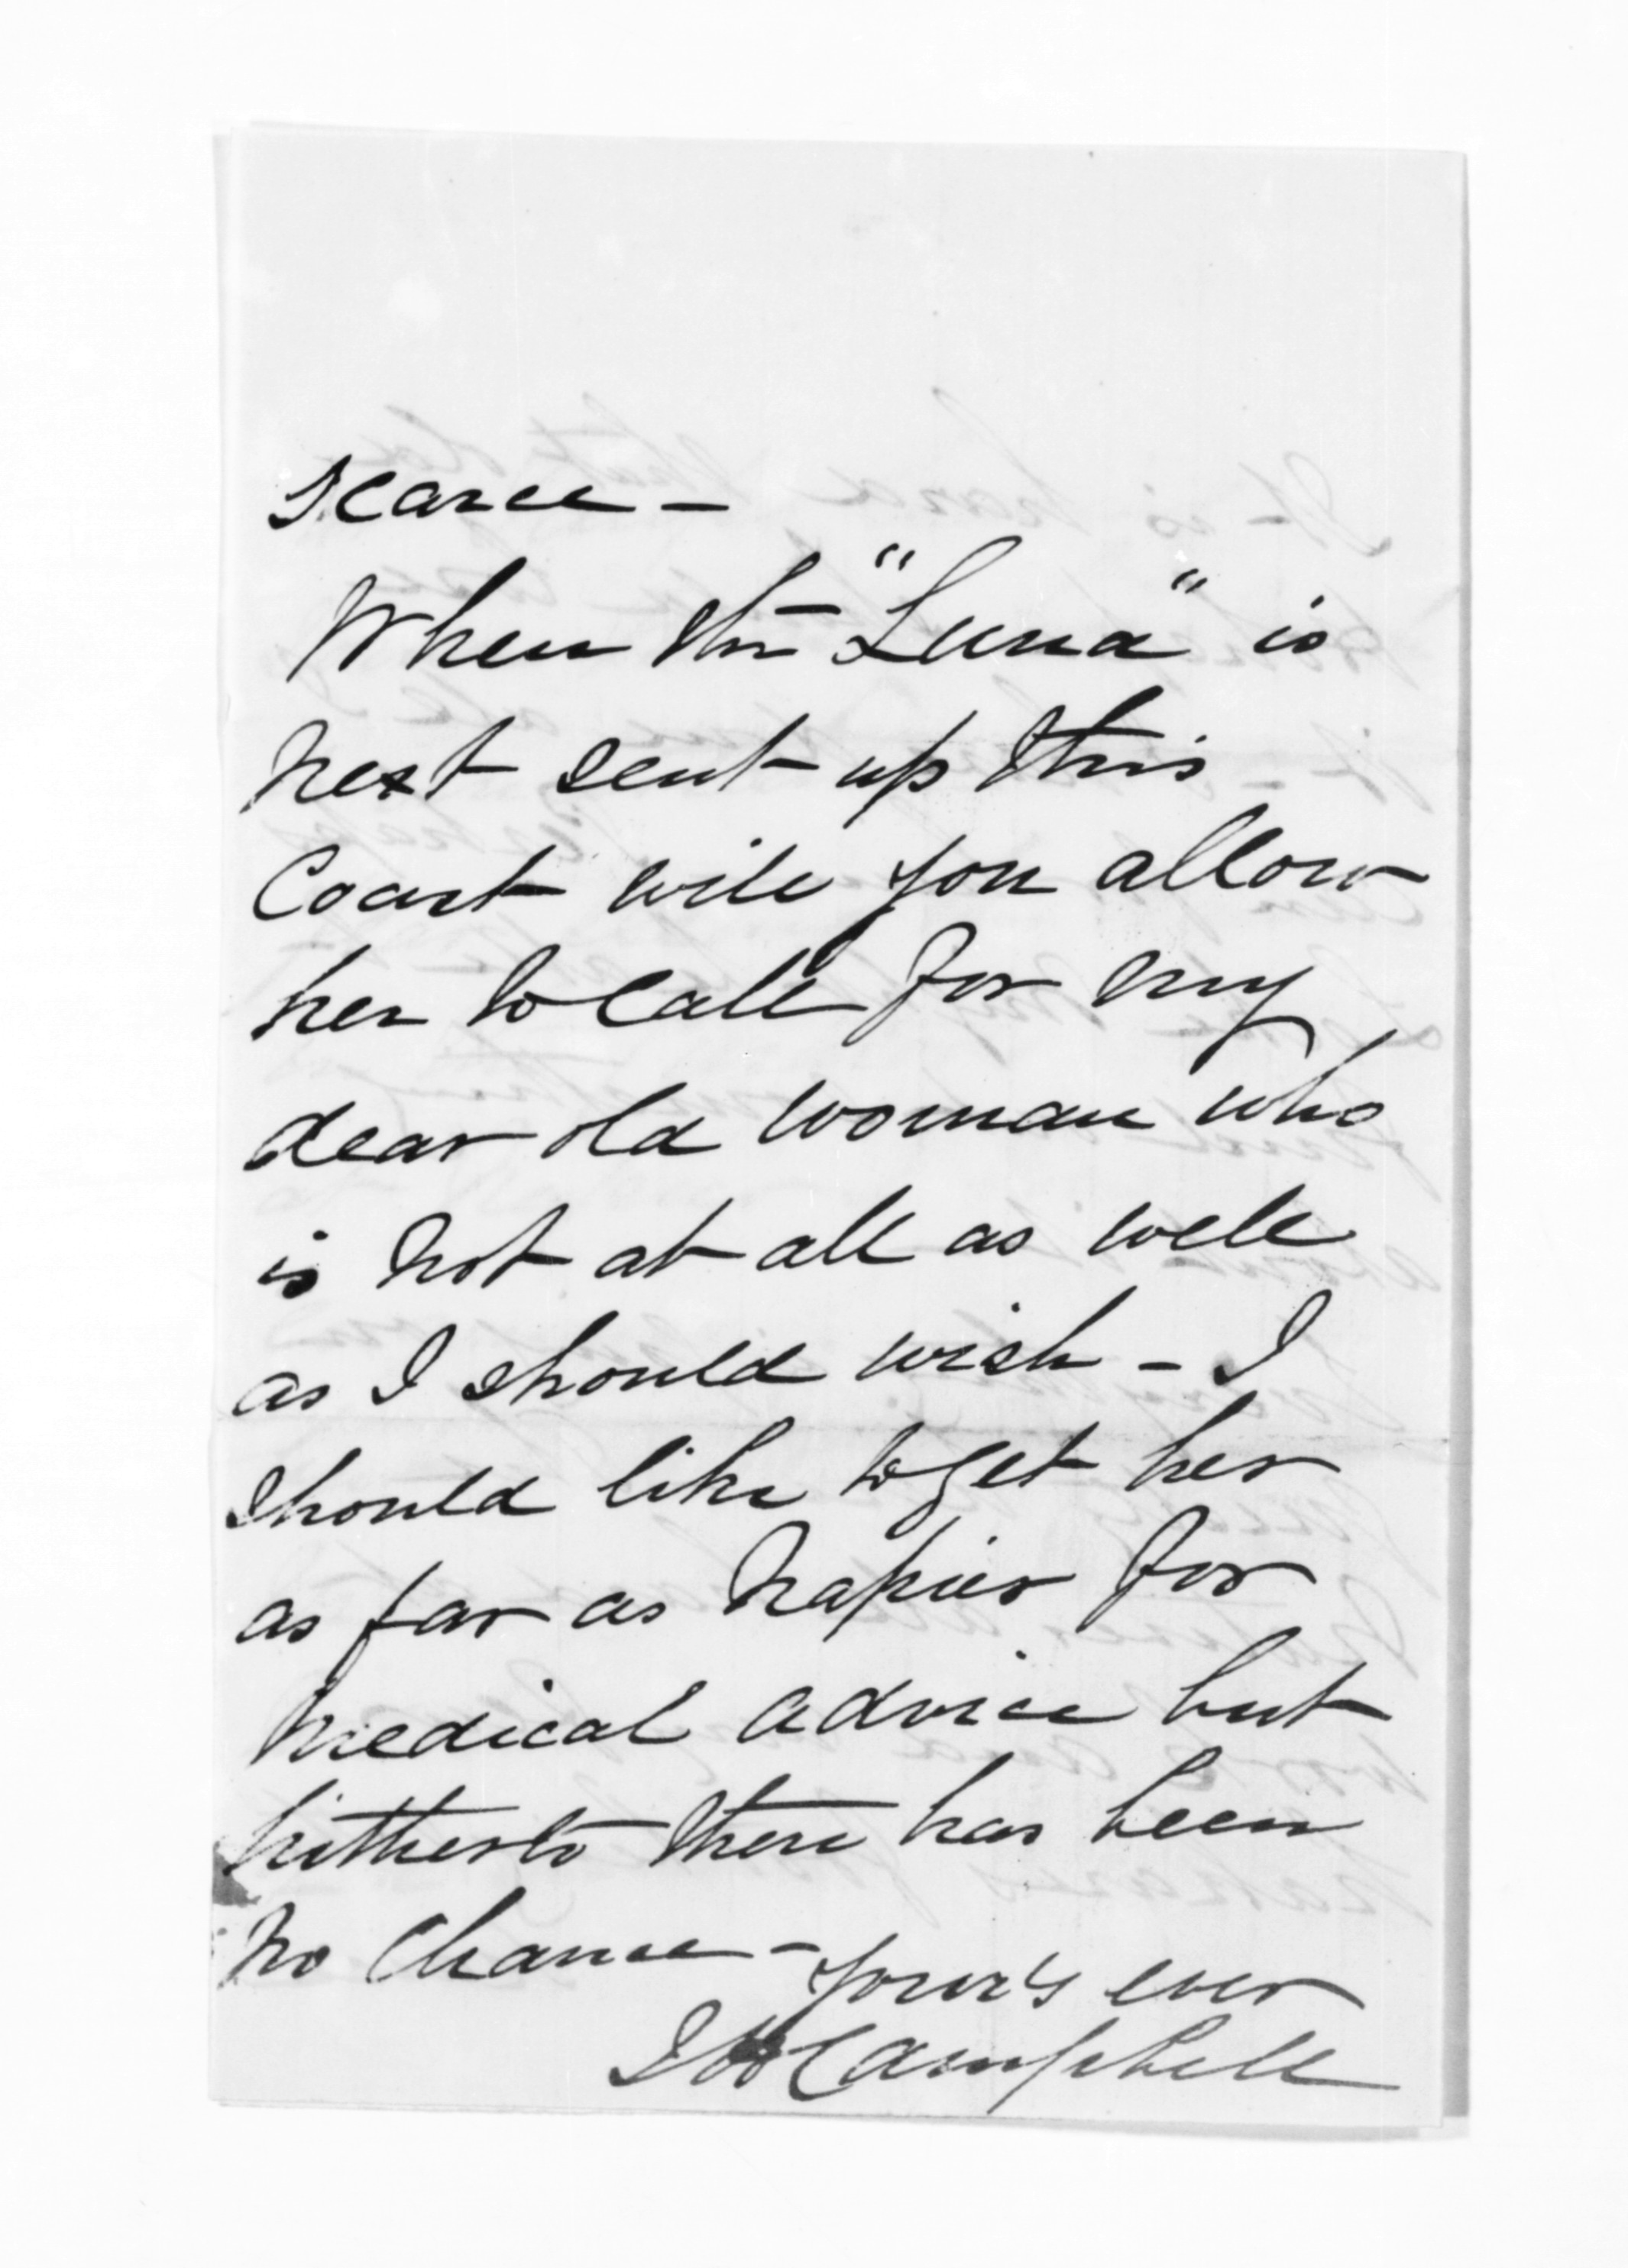 scarce -
When the "Luna" is
next sent up this
Coast will you allow
her to call for my
dear old woman who
is not at all as well
as I should wish - I
should like to get her
as far as Napier for
medical advice but
hitherto there has been
no chance - Your's ever
J H Campbell